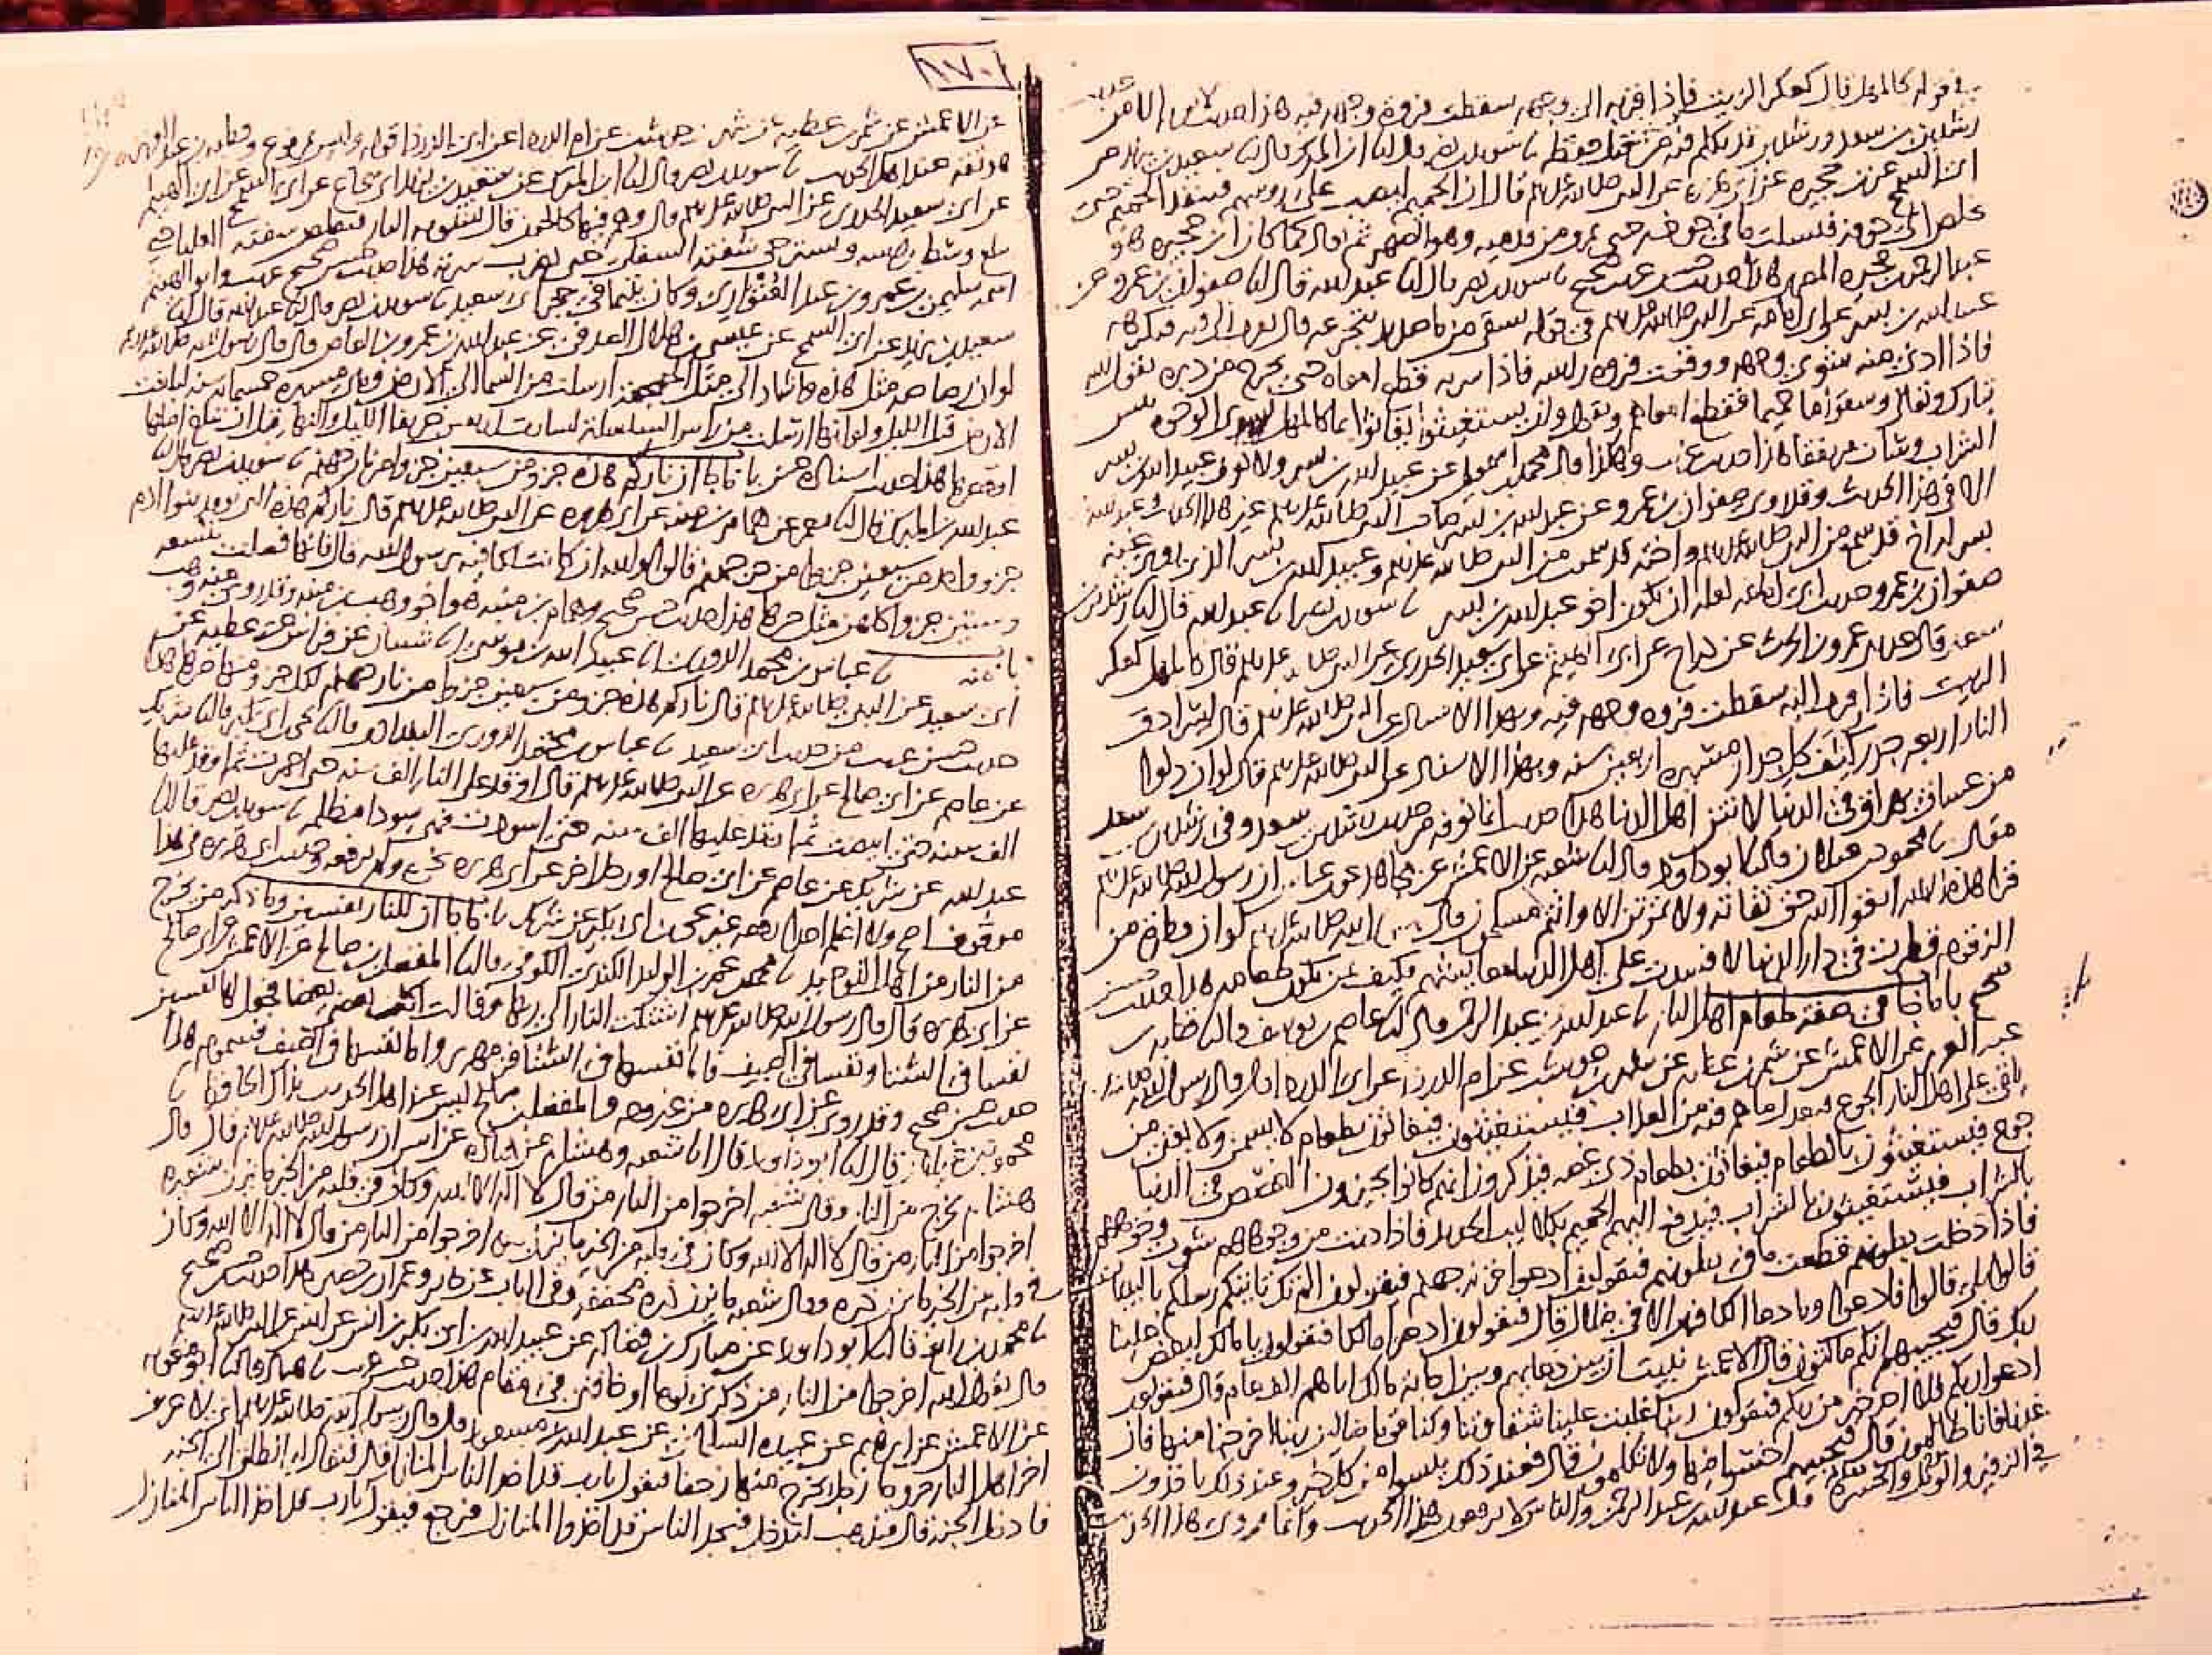 في قوله كالمهل قال كعكر الزيت فاذا قربه الى وجهه سقطت فروة وجهه فيه هذا حديث لا الا من
رشدين بن سعد ورشدين قد تكلم فيه من قبل حفظه سويد بن نصر قال انا ابن المبرك قال انا سعيد بن
ابن السمح عن ابن حجيرة عن ابي هريرة عن النبي صلى الله عليه وسلم قال ان الحميم ليصب على رءوسهم فينفذ الحميم حتى
يخلص الى جوفه فيسلت ما في جوفه حتى يمرق من قدميه وهو الصهر ثم يعاد كما كان ابن حجيرة هو
عبد الرحمن بن حجيرة المصري هذا حديث حسن صحيح سويد بن نصر قال انا عبد الله قال انا صفوان بن عمرو عن
عبيد الله بن بسر عن ابي امامة عن النبي صلى الله عليه وسلم في قوله يسقى من ماء صديد يتجرعه قال يقرب الى فيه فيكرهه
فاذا ادني منه شوى وجهه ووقعت فروة راسه فاذا شربه قطع امعاه حتى يخرج من دبره يقول الله
تبارك وتعالى وسقوا ماء حميما فقطع امعاهم ويقول وان يستغيثوا يغاثوا بماء كالمهل يشوي الوجوه بئس
الشراب وساءت مرتفقا هذا حديث غريب وهكذا قال محمد بن اسمعيل عن عبيد الله بن بسر ولا نعرف عبيد الله بن بسر
الا في هذا الحديث وقد روى صفوان بن عمرو عن عبد الله بن بسر صاحب النبي صلى الله عليه وسلم غير هذا الحديث وعبد الله
بسر له اخ قد سمع من النبي صلى الله عليه وسلم واخته قد سمعت من النبي صلى الله عليه وسلم وعبيد الله بن بسر الذي روى عنه
صفوان بن عمرو حديث ابي امامة لعله ان يكون اخو عبد الله بن بسر سويد بن نصر انا عبد الله قال انا رشدين بن
سعد قال حدثني عمرو بن الحرث عن دراج عن ابي الهيثم عن ابي سعيد الخدري عن النبي صلى الله عليه وسلم قال كالمهل كعكر
الزيت فاذا قرب اليه سقطت فروة وجهه فيه وبهذا الاسناد عن النبي صلى الله عليه وسلم قال لسرادق
النار اربعة جدر كثف كل جدار مسيرة اربعين سنة وبهذا الاسناد عن النبي صلى الله عليه وسلم قال لو ان دلوا
من غساق يهراق في الدنيا لانتن اهل الدنيا هذا حديث انما نعرفه من حديث رشدين بن سعد وفي رشدين بن سعد
مقال محمود بن غيلان قال انا ابو داود قال انا شعبة عن الاعمش عن مجاهد عن ابن عباس ان رسول الله صلى الله عليه وسلم
قرا هذه الاية اتقوا الله حق تقاته ولا تموتن الا وانتم مسلمون قال رسول الله صلى الله عليه وسلم لو ان قطرة من
الزقوم قطرت في دار الدنيا لافسدت على اهل الدنيا معايشهم فكيف بمن يكون طعامه هذا حديث حسن
صحيح باب ما جا في صفة طعام اهل النار عبد الله بن عبد الرحمن قال انا عاصم بن يوسف قال انا قطبة بن
عبد العزيز عن الاعمش عن شمر بن عطية عن شهر بن حوشب عن ام الدرداء عن ابي الدرداء قال قال رسول الله صلى الله
يلقى على اهل النار الجوع فيعدل ما هم فيه من العذاب فيستغيثون فيغاثون بطعام لا يسمن ولا يغني من
جوع فيستغيثون بالطعام فيغاثون بطعام ذي غصة فيذكرون انهم كانوا يجيزون الغصص في الدنيا
بالشراب فيستغيثون بالشراب فيدفع اليهم الحميم بكلاليب الحديد فاذا دنت من وجوههم شوت وجوههم
فاذا دخلت بطونهم قطعت ما في بطونهم فيقولون ادعوا خزنة جهنم فيقولون الم تك تاتيكم رسلكم بالبينات
قالوا بلى قالوا فادعوا وما دعاء الكافرين الا في ضلال قال فيقولون ادعوا مالكا فيقولون يا مالك ليقض علينا
ربك قال فيجيبهم انكم ماكثون قال الاعمش نبيت ان بين دعايهم وبين اجابة مالك اياهم الف عام قال فيقولون
ادعوا ربكم فلا احد خير من ربكم فيقولون ربنا غلبت علينا شقاوتنا وكنا قوما ضالين ربنا اخرجنا منها فان
عدنا فانا ظالمون قال فيجيبهم اخسئوا فيها ولا تكلمون قال فعند ذلك يئسوا من كل خير وعند ذلك ياخذون
في الزفير والويل والحسرة قال عبد الله بن عبد الرحمن والناس لا يرفعون هذا الحديث وانما روي هذا الحديث
١٧٠
عن الاعمش عن شمر بن عطية عن شهر بن حوشب عن ام الدرداء عن ابي الدرداء قوله وليس بمرفوع وقطبة بن عبد العزيز
هو ثقة عند اهل الحديث سويد بن نصر قال انا ابن المبرك عن سعيد بن يزيد ابي شجاع عن ابي السمح عن ابي الهيثم
عن ابي سعيد الخدري عن النبي صلى الله عليه وسلم قال وهم فيها كالحون قال تشويه النار فتقلص شفته العليا حتى
تبلغ وسط راسه وتسترخي شفته السفلى حتى تضرب سرته هذا حديث حسن صحيح غريب وابو الهيثم
اسمه سليمن بن عمرو بن عبد العتواري وكان يتيما في حجر ابي سعيد سويد بن نصر قال انا عبد الله قال انا
سعيد بن يزيد عن ابي السمح عن عيسى بن هلال الصدفي عن عبد الله بن عمرو بن العاص قال قال رسول الله صلى الله عليه وسلم
لو ان رصاصة مثل هذه واشار الى مثل الجمجمة ارسلت من السما الى الارض وهي مسيرة خمسماية سنة لبلغت
الارض قبل الليل ولو انها ارسلت من راس السلسلة لسارت اربعين خريفا الليل والنهار قبل ان تبلغ اصلها
او قعرها هذا حديث اسناده حسن باب ما جا ان ناركم هذه جزو من سبعين جزوا من نار جهنم سويد بن نصر قال انا
عبد الله بن المبرك قال انا معمر عن همام بن منبه عن ابي هريرة عن النبي صلى الله عليه وسلم قال ناركم هذه التي يوقد بنوا ادم
جزو واحد من سبعين جزوا من حر جهنم قالوا والله ان كانت لكافية يرسول الله قال فانها فضلت بتسعة
وستين جزوا كلهن مثل حرها هذا حديث حسن صحيح وهمام بن منبه هو اخو وهب بن منبه وقد روى عنه وهب
باب منه عباس بن محمد الدوري انا عبيد الله بن موسى انا شيبان عن فراس عن عطية عن
ابي سعيد عن النبي صلى الله عليه وسلم قال ناركم هذه جزو من سبعين جزوا من نار جهنم لكل جزو منها حرها هذا
حديث حسن غريب من حديث ابي سعيد عباس بن محمد الدوري البغدادي قال انا يحيى بن ابي بكير قال انا شريك
عن عاصم عن ابي صالح عن ابي هريرة عن النبي صلى الله عليه وسلم قال اوقد على النار الف سنة حتى احمرت ثم اوقد عليها
الف سنة حتى ابيضت ثم اوقد عليها الف سنة حتى اسودت فهي سودا مظلمة سويد بن نصر قال انا
عبد الله عن شريك عن عاصم عن ابي صالح او رجل اخر عن ابي هريرة نحوه ولم يرفعه وحديث ابي هريرة في هذا
موقوف اصح ولا اعلم احدا رفعه غير يحيى بن ابي بكير عن شريك باب ما جا ان للنار نفسين وما ذكر من يخرج
من النار من اهل التوحيد محمد بن عمر بن الوليد الكندي الكوفي قال انا المفضل بن صالح عن الاعمش عن ابي صالح
عن ابي هريرة قال قال رسول الله صلى الله عليه وسلم اشتكت النار الى ربها وقالت اكل بعضي بعضا فجعل لها نفسين
نفسا في الشتا ونفسا في الصيف فاما نفسها في الشتا فزمهرير واما نفسها في الصيف فسموم هذا
حديث حسن صحيح وقد روي عن ابي هريرة من غير وجه والمفضل بن صالح ليس عند اهل الحديث بذاك الحافظ
محمود بن غيلان قال انا ابو داود قال انا شعبة وهشام عن قتادة عن انس ان رسول الله صلى الله عليه وسلم قال قال
هشام يخرج من النار وقال شعبة اخرجوا من النار من قال لا اله الا الله وكان في قلبه من الخير ما يزن شعيرة
اخرجوا من النار من قال لا اله الا الله وكان في قلبه من الخير ما يزن برة اخرجوا من النار من قال لا اله الا الله وكان
في قلبه من الخير ما يزن ذرة وقال شعبة ما يزن ذرة مخففة وفي الباب عن جابر وعمران بن حصين هذا حديث حسن صحيح
محمد بن رافع قال انا ابو داود عن مبارك بن فضالة عن عبيد الله بن ابي بكر بن انس عن انس عن النبي صلى الله عليه وسلم
قال يقول الله اخرجوا من النار من ذكرني يوما او خافني في مقام هذا حديث حسن غريب هناد قال انا ابو معوية
عن الاعمش عن ابرهيم عن عبيدة السلماني عن عبد الله بن مسعود قال قال رسول الله صلى الله عليه وسلم اني لا عرف
اخر اهل النار خروجا رجل يخرج منها زحفا فيقول يا رب قد اخذ الناس المنازل قال فيقال له انطلق الى الجنة
فادخل الجنة قال فيذهب ليدخل فيجد الناس قد اخذوا المنازل فيرجع فيقول يا رب قد اخذ الناس المنازل